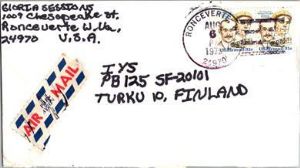 GLORIA SESSIONS
1009 Chesapeake St.
Ronceverte W.Va.
24970 U.S.A.
RONCEVERTE
AUG
6
24970
AIR MAIL
IYS
PB 125 SF-20101
TURKU 10, FINLAND